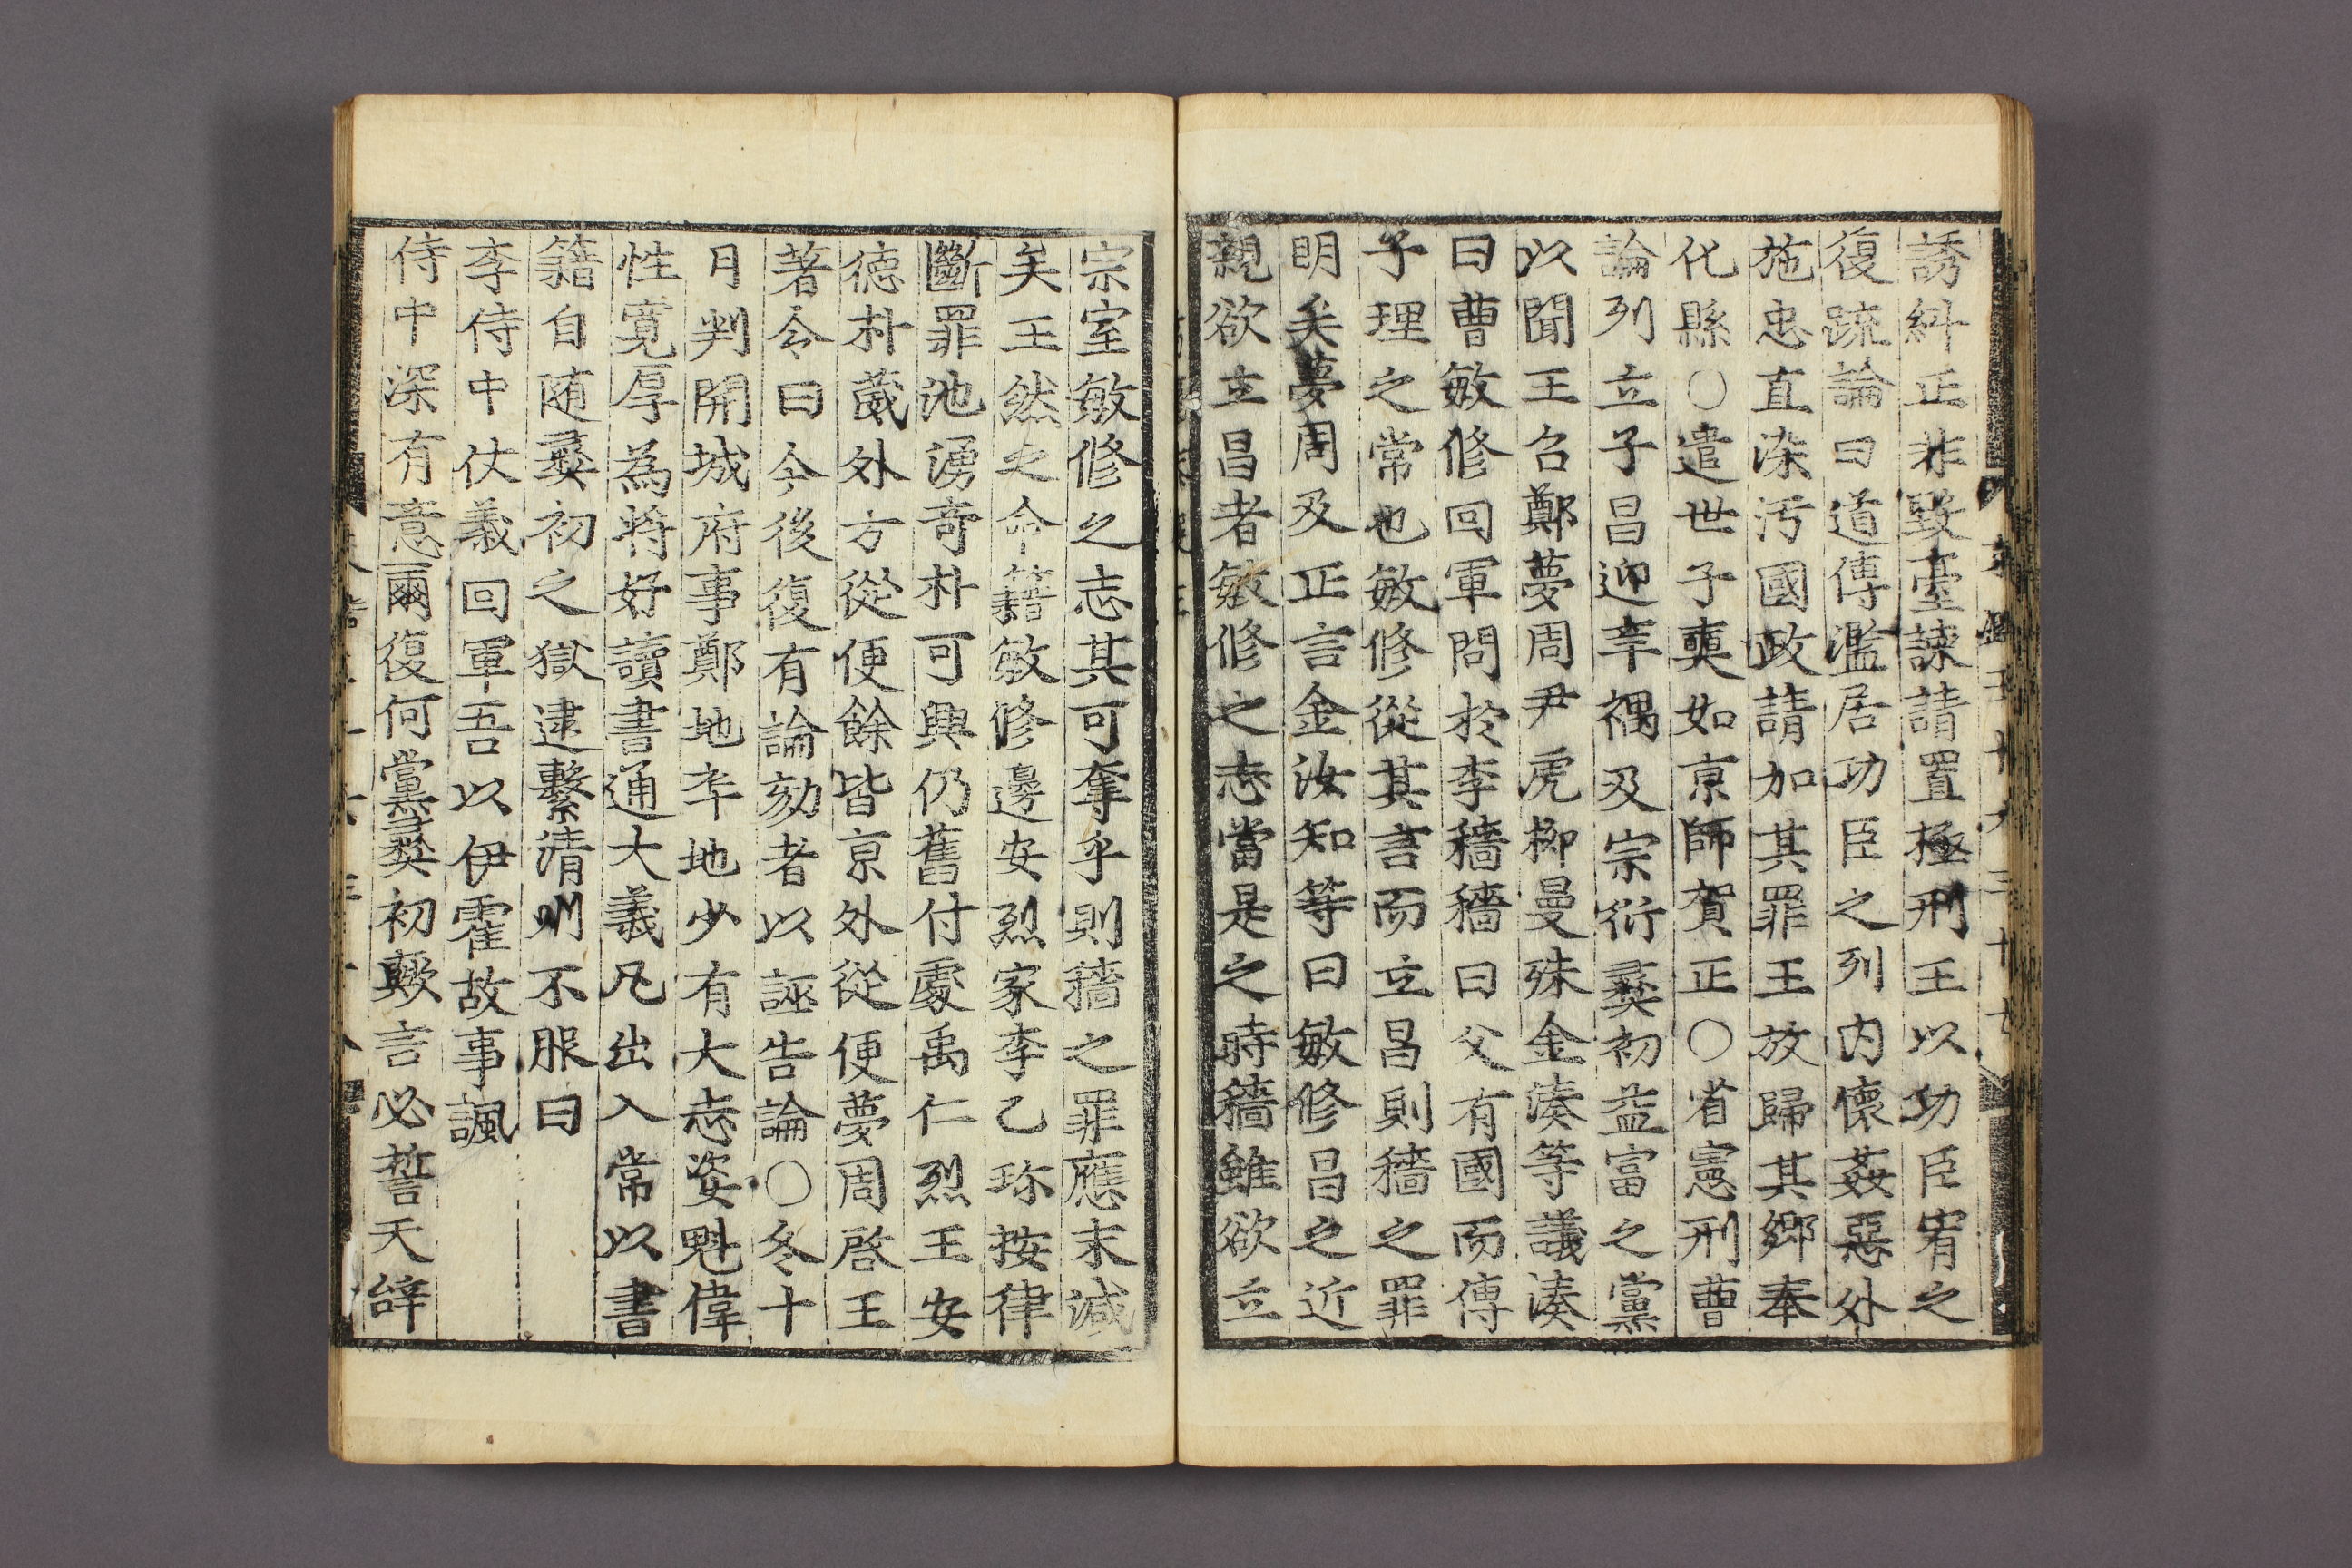 誘糾正非毀臺諫請置極刑王以功臣宥之
復疏論曰道傳濫居功臣之列內懷姦惡外
施忠直染汚國政請加其罪王放歸其鄉奉
化縣○遣世子奭如京師賀正○省憲刑曹
論列立子昌迎辛禑及宗衍彛初益富之黨
以聞王召鄭夢周尹虎柳曼殊金湊等議湊
曰曹敏修回軍問於李穡穡曰父有國而傳
子理之常也敏修從其言而立昌則穡之罪
明矣夢周及正言金汝知等曰敏修昌之近
親欲立昌者敏修之志當是之時穡雖欲立
宗室敏修之志其可奪乎則穡之罪應末減
矣王然之命籍敏修邊安烈家李乙珎按律
斷罪池湧奇朴可興仍舊付處禹仁烈王安
德朴葳外方從便餘皆京外從便夢周啓王
著令曰今後復有論劾者以誣告論○冬十
月判開城府事鄭地卒地少有大志姿魁偉
性寬厚爲將好讀書通大義凡出入常以書
籍自随彛初之獄逮繫淸州不服曰
李侍中仗義回軍吾以伊霍故事諷
侍中深有意爾復何黨彛初歟言必誓天辞